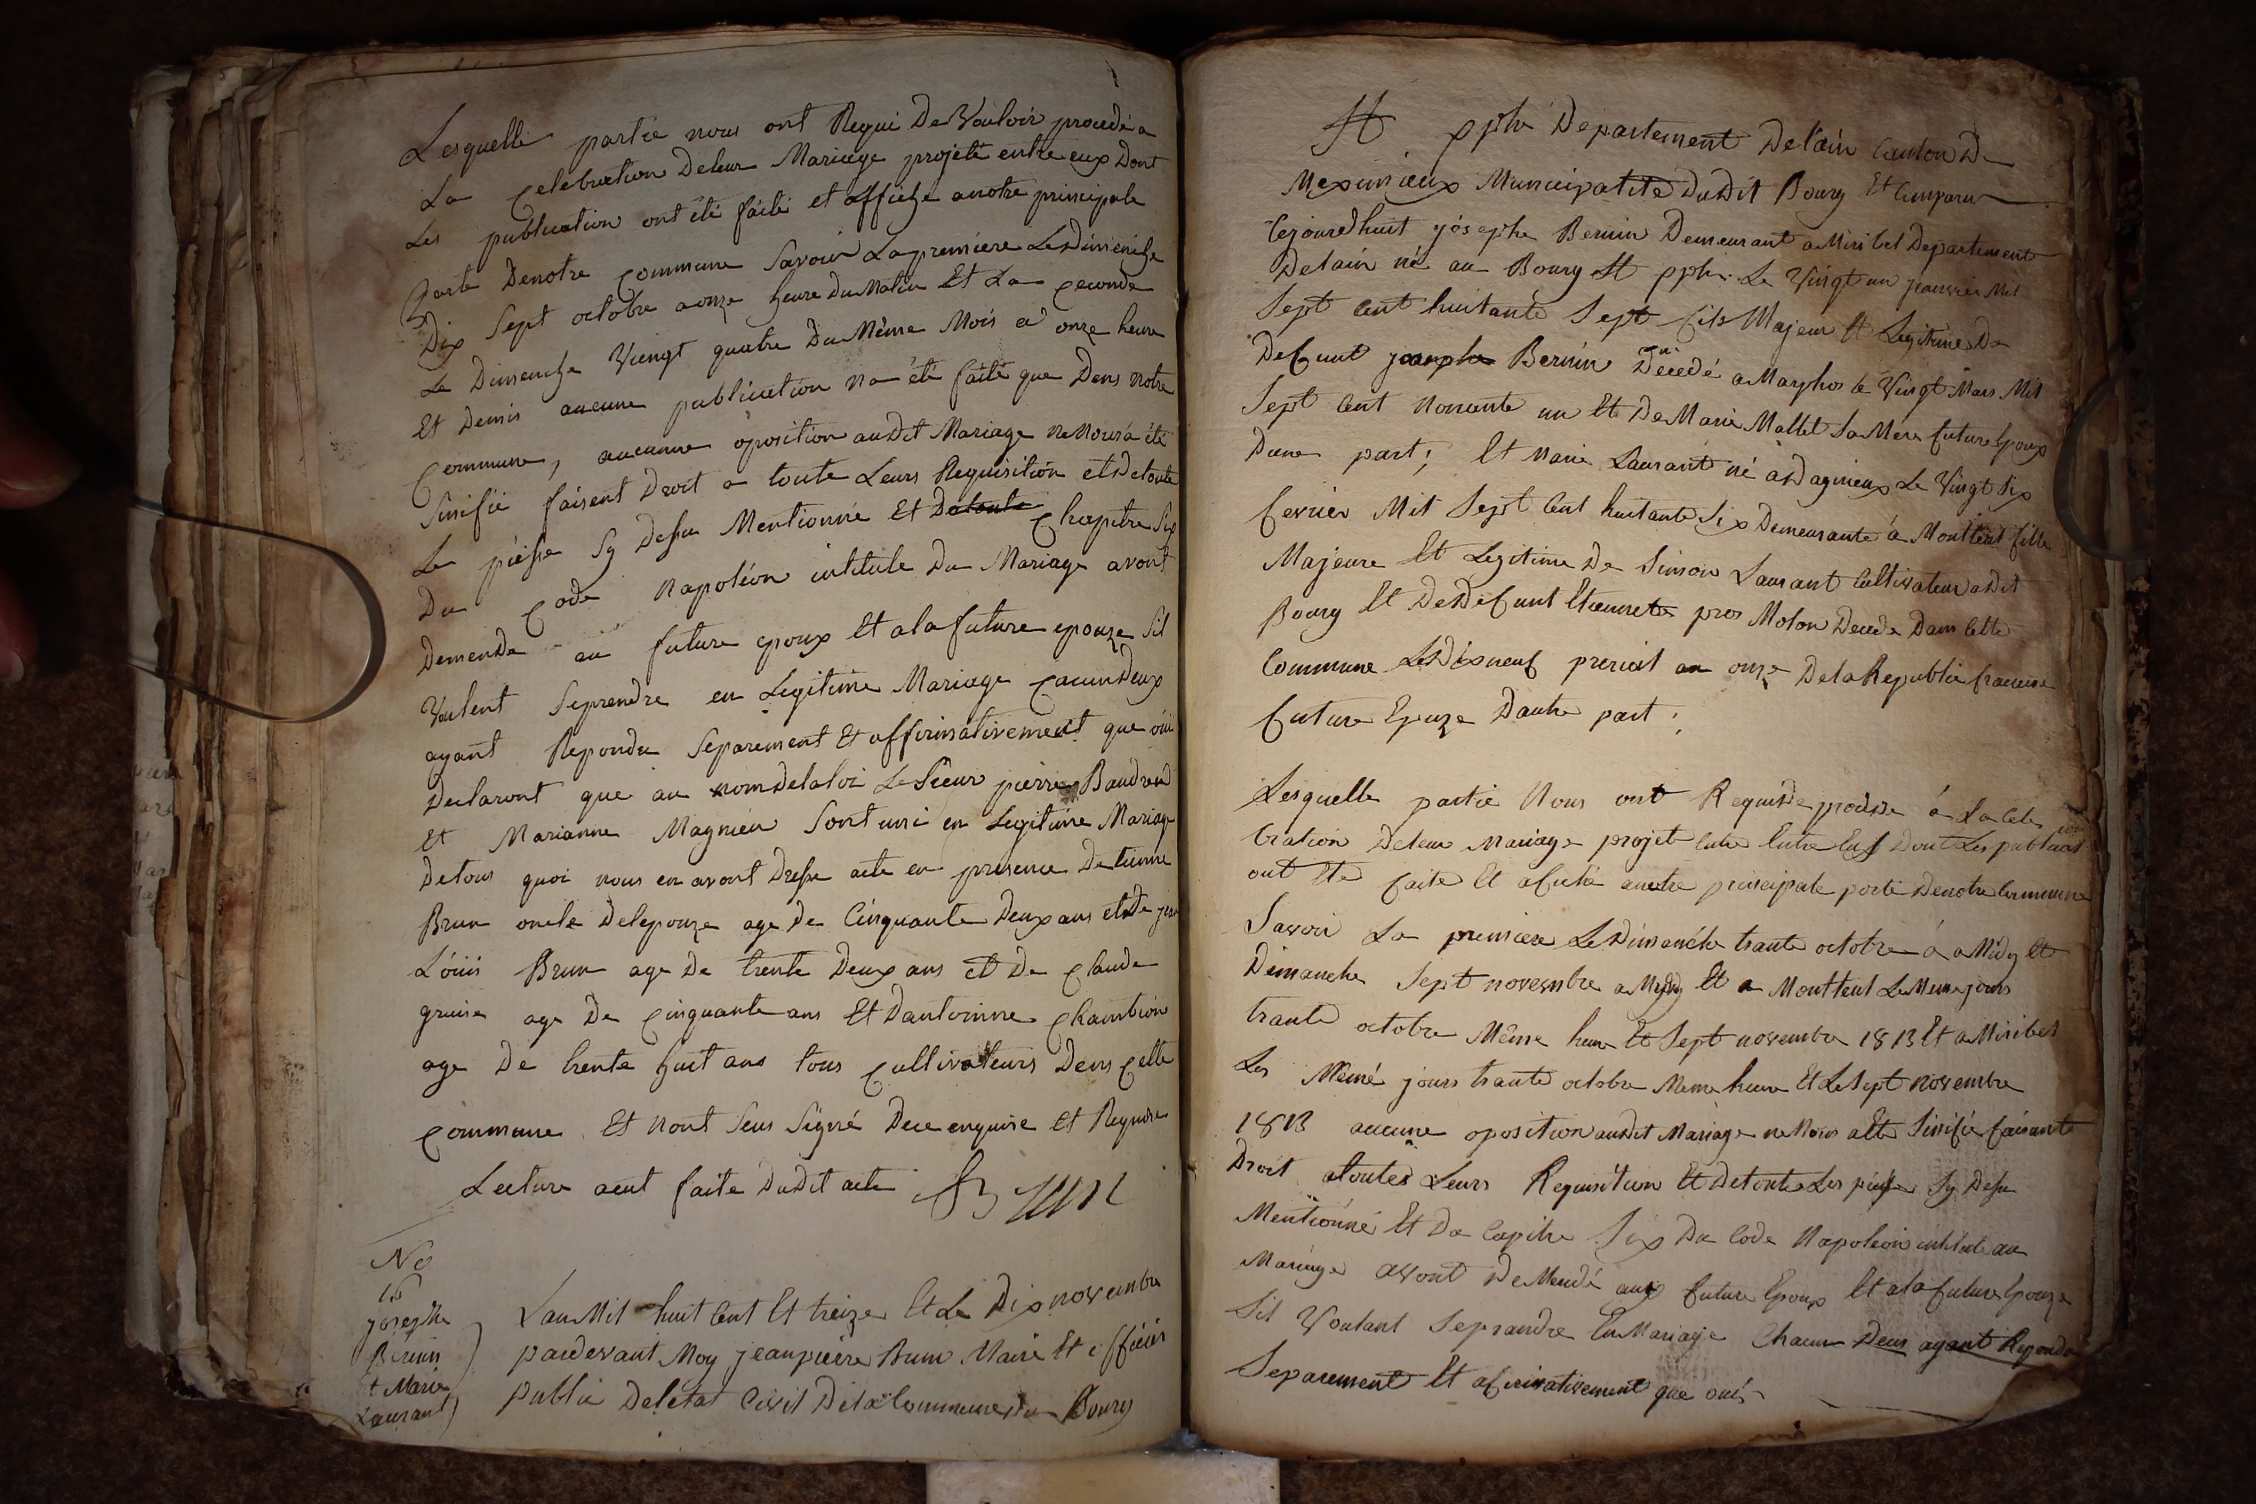 Lesquelle partie nous ont Requi De Vouloir procedé a
La Celebration Deleur Mariage projeté entre eux Dont
Les publication ont été faite et affiche anotre principale
Porte Denotre Commune Savoir Lapremiere Le Dimenche
Dix Sept octobre aonze heure Du Matin Et La Ceconde
Le Dimenche Viengt quatre Du Même Mois a onze heure
Et Demis aucune publication na été faite que Dens notre
Commune, aucunne oposition audit Mariage ne Nousa été
Sinifié faisent Droit a toute Leurs Requisition et De toute
Le piesse Sy Dessu Mentionné Et Detoute Chapitre Six
Du Code Napoléon intitule Du Mariage avont
Demende au future epoux Et ala future epouze Sil
Voulent Seprendre en Legitime Mariage Cacun Deux
ayant Repondu Separement Et affirmativement que oui
Declaront que au nom Delaloi Le Sieur pierre Baudrand
Et Marianne Magnien Sont uni en Legitime Mariage
Detous quoi nous en avont Dresse acte en presence Detienne
Brun oncle Delepouze age De Cinquante Deux ans et De jean
Loüis Brun age De trente Deux ans et De Claude
gruise age De Cinquante ans Et Dantoinne Chambion
age De trente huit ans tous Cultivateurs Dens Cette
Commune Et Nont Seus Signé Dece enquise et Requise
Lecture aeut faite Dudit acte Brun
No
16
josephe
Bernin
et Marie
Laurant
Lan Mil huit Cent Et treize Et Le Dix novembre
pardevant Moy jeanpierre Brun Maire Et officier
public Deletat Civil Dela Commune Du Bourg
St Xphe Departement Delain Canton De
Meximieux Municipatité Dudit Bourg Et Comparu
Cejourdhuit josephe Bernin Demeurant a Miribel Departement
Delain né au Bourg St Xphe Le Vingt un janvier Mil
Sept Cent huitante Sept fils Majeur Et Legitime De
Defunt josephe Bernin Decedé a Marphos le Vingt Mars Mil
Sept Cent Nonente un Et De Marie Mallet Sa Mere future Epoux
Dune part; Et Marie Laurant né a Dagnieux Le Vingt Six
fevrier Mil Sept Cent huitante Six Demeurante á Montluel fille
Majeure Et Legitime De Simon Laurant Cultivateur audit
Bourg Et De Defunt Etiennette pros Molon Decede Dans Cette
Commune Le Dixneuf prerial an onze Dela Republic francaise
future Epouze Dautre part;
Lesquelle partie Nous ont Requis De procede á La Cele
bration Deleur Mariage projet Entre Eus Dont Les publications
ont Ete faite Et afiché anotre principale porte Denotre Commune
Savoir La premiere Le Dimanche trante octobre á a Midy Et
Dimanche Sept novembre a Midy Et a Montluel Le Meme jours
trante octobre Même heure Et Sept novembre 1813 Et a Miribel
Les Même jours trante octobre Meme heure Et Le Sept Novembre
1813 aucune oposition audit Mariage ne Nous aEté Sinifié faisante
Droit atoutes Leurs Requisition Et Detoute Les piesse Sy Dessu
Mentionné Et Du Capitre Six Du Code Napoleon intitule au
Mariage avont Demendé aux future Epoux Et ala future Epouze
Sil Voulant Seprandre En Mariage Chacun Deux ayant Repondu
Separement Et afirmativement que oui